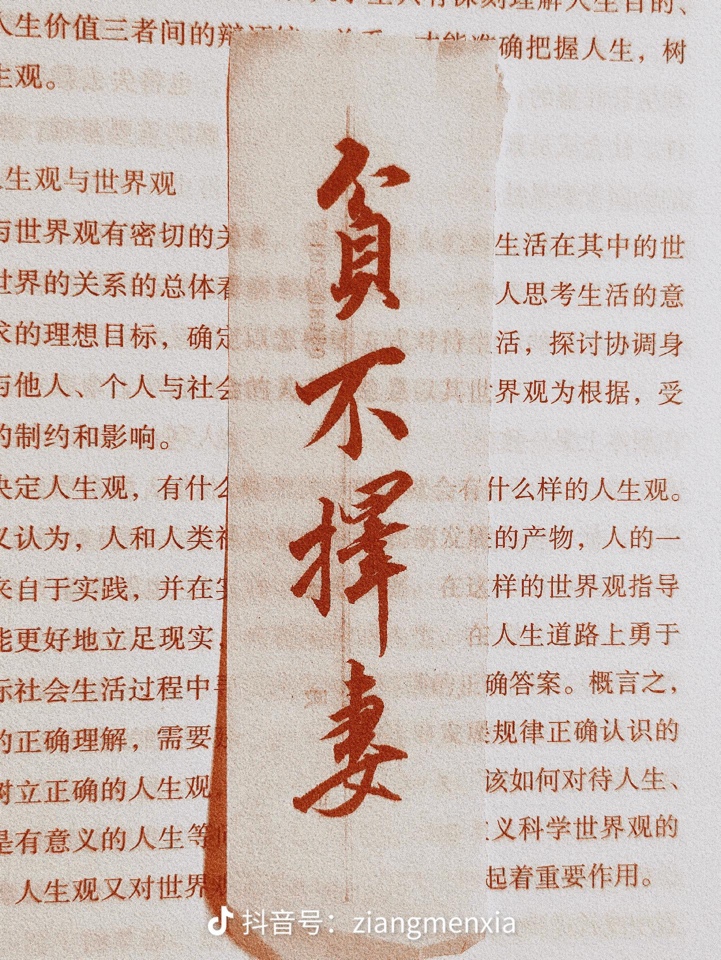 人生价值三者间的
确把握人生，树
生观。
人生观与世界观
与世界观有密切的关
生活在其中的世
世界的关系的总体看
人思考生活的意
求的理想目标，确定
活，探讨协调身
与他人、个人与社会
界观为根据，受
的制约和影响。
决定人生观，有什么
什么样的人生观。
义认为，人和人类社
的产物，人的一
来自于实践，并在实
样的世界观指导
能更好地立足现实，
在人生道路上勇于
际社会生活过程中
确答案。概言之，
的正确理解，需要
规律正确认识的
树立正确的人生观，
该如何对待人生、
是有意义的人生等
义科学世界观的
人生观又对世界观
起着重要作用。
貧不擇妻
抖音号：ziangmenxia